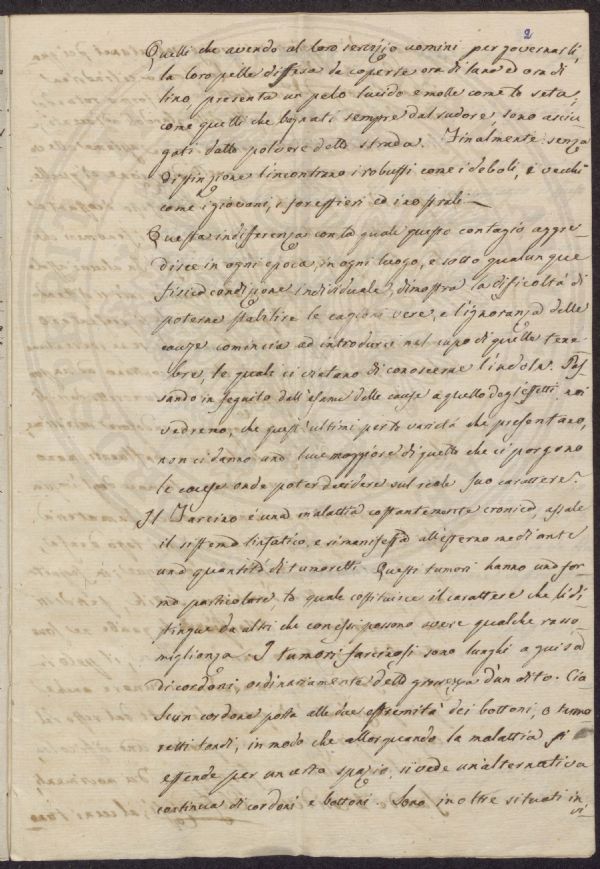 2
Quelli che avendo al loro servizio uomini per governarli,
la loro pelle diffesa da coperte ora di lana ed ora di
lino, presenta un pelo lucido e molle come la seta;
come quelli che bagnati sempre dal sudore, sono asciu
gati dalla polvere della strada. Finalmente senza
distinzione s'incontrano i robusti come i deboli, i vecchi
come i giovani, i forestieri ed i nostrali.
Questa indifferenza con la quale questo contagio aggre
disce in ogni epoca, in ogni luogo, e sotto qualunque
fisica condizione individuale, dimostra la difficoltà di
poterne stabilire le cagioni vere, e l'ignoranza delle
cauze comincia ad introdurci nel cupo di quelle tene
bre, le quale ci vietano di conoscerne l'indole. Pas
sando in seguito dall'esame delle cause a quello degl'effetti, noi
vedremo, che quest'ultimi per la varietà che presentano,
non ci danno una luce maggiore di quella che ci porgono
le cause onde poter decidere sul reale suo carattere.
Il Farcino è una malattia costantemente cronica, assale
il sistema linfatico, e si manifesta all'esterno mediante
una quantità di tumoretti. Questi tumori hanno una for
ma particolare, la quale costituisce il carattere che li di
stingue da altri che con essi possono avere qualche rasso
miglianza. I tumori farcinosi sono lunghi a guisa
di cordoni, ordinariamente della grossezza d'un dito. Cia
scun cordone porta alle due estremità dei bottoni, o tumo
retti tondi, in modo che allorquando la malattia si
estende per un certo spazio, si vede un'alternativa
continua di cordoni e bottoni. Sono inoltre situati in
si